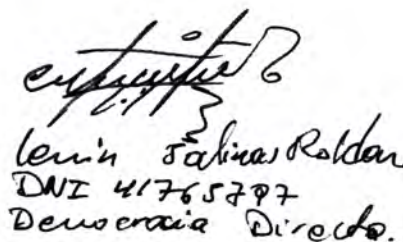 Lenin Salinas Roldan
DNI 41765797
Democracia Directa.